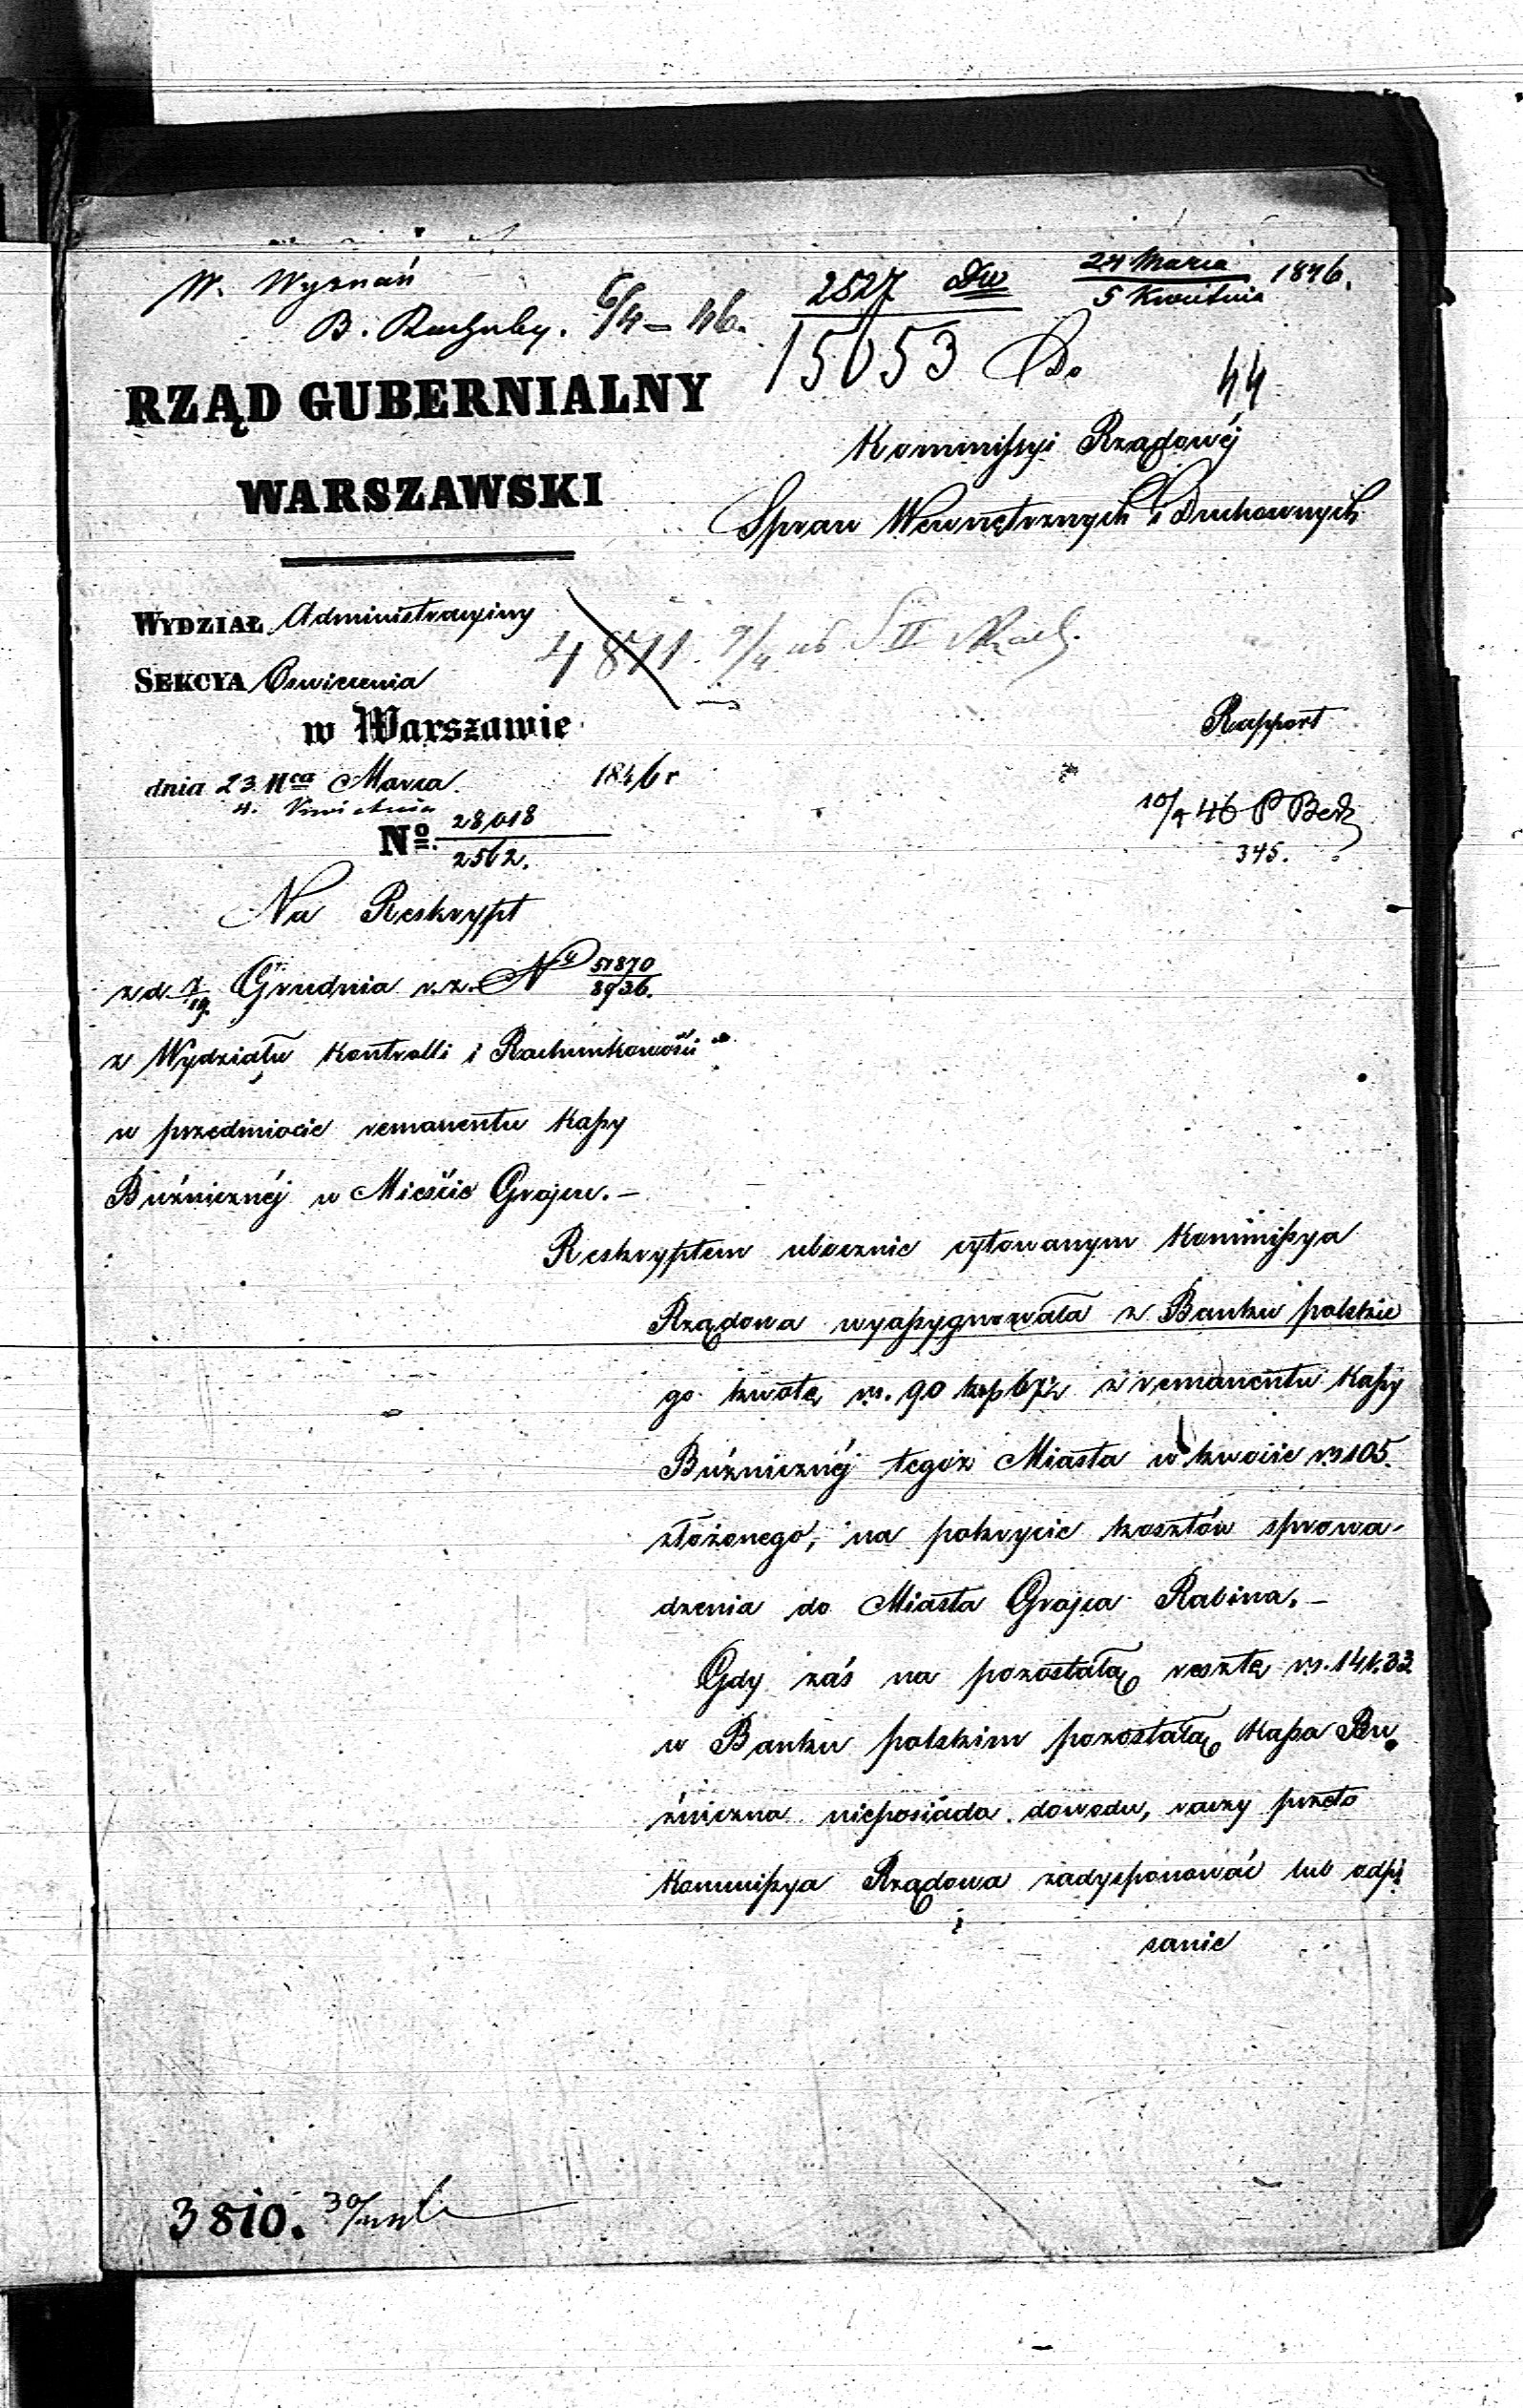 W. Wyznań
B. Rachuby. 6/4 – 46.
2527 Dw 24 Marca / 5 Kwietnia 1846.
15053 Do
44
RZĄD GUBERNIALNY
WARSZAWSKI
Kommissyi Rządowéj
Spraw Wewnętrznych i Duchownych
WYDZIAŁ Administracyiny
4871 9/4 S II
SEKCYA Oswiecenia
w Warszawie
Rapport
dnia 23 Mca Marca 1846 r
4. Kwietnia
No. 28,018 / 2562.
10/4 46
345.
Na Reskrypt
z d 7/19. Grudnia r. z. No 51870 / 8936.
z Wydziału Kontrolli i Rachunkowości
w przedmiocie remanentu Kassy
Buźnicznéj w Mieście Grojcu. –
Reskryptem ubocznie cytowanym Kommissya
Rządowa wyassygnowała z Banku polskie
go kwotę rs. 90 kop 67½ z remanentu Kassy
Buźnicznéj tegoż Miasta w kwocie rs 105.
złożonego, na pokrycie kosztów sprowa-
dzenia do Miasta Grojca Rabina. –
Gdy zaś na pozostałą resztę rs. 14 k. 33
w Banku polskim pozostałą Kassa Bu
źniczna nieposiada dowodu, raczy przeto
Kommissya Rządowa zadysponować lub odpi
sanie
3810. 30/